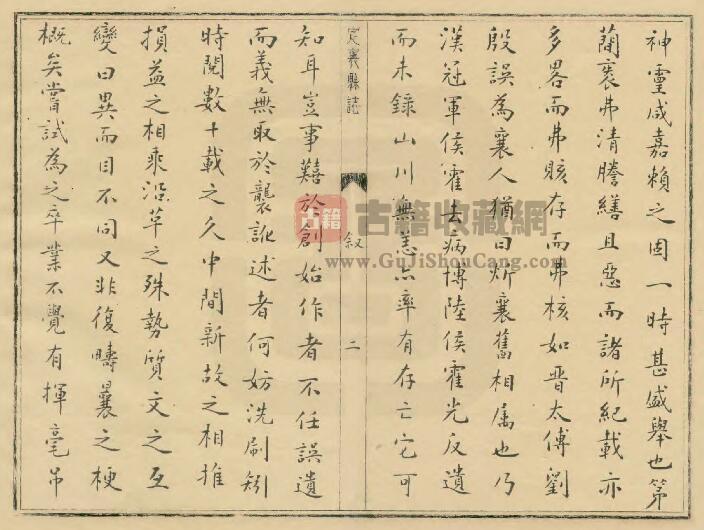 神靈咸嘉賴之固一時甚盛舉也第
蘭襄弗清謄繕且惡而諸所紀載亦
多畧而弗賅存而弗核如晋太傅劉
殷誤為襄人猶曰炘襄舊相属也乃
漢冠軍侯霍去病博陸侯霍光反遺
而未錄山川無恙亦率有存亡它可
定襄縣誌
叙
二
知耳豈事難於創始作者不任誤遺
而義無取於襲訛述者何妨洗刷矧
時閱數十載之久中間新故之相推
損益之相乘沿革之殊勢質文之互
變日異而月不同又非復疇曩之梗
概矣嘗試為之卒業不覺有揮毫吊
古籍
古籍收藏網
www.GuJiShouCang.com